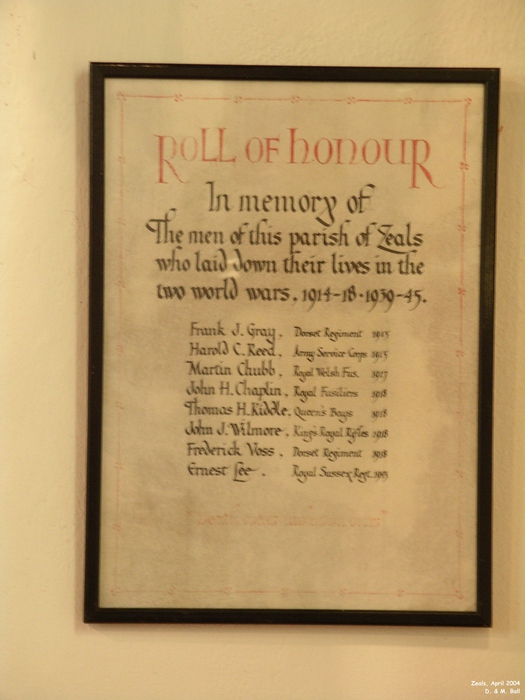 Roll of honour
In memory of
The men of this parish of Zeals
who laid down their lives in the
two world wars. 1914-18 · 1939-45.
Frank J. Gray, Dorset Regiment 1915
Harold C. Reed, Army Service Corps 1915
Martin Chubb, Royal Welsh Fus. 1917
John H. Chaplin, Royal Fusiliers 1918
Thomas H. Kiddle, Queen's Bays 1918
John J. Wilmore, King's Royal Rifles 1918
Frederick Voss, Dorset Regiment 1918
Ernest Lee, Royal Sussex Regt.
Zeals, April 2004
D. & M. Ball